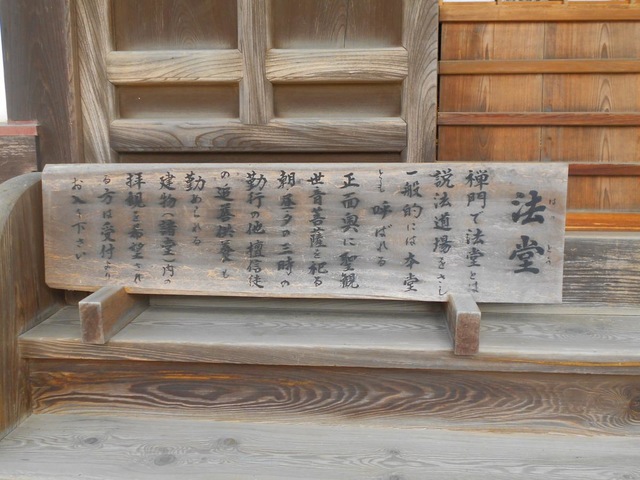 法堂
はっとう
禅門で法堂とは
説法道場をさし
一般的には本堂
とも呼ばれる
正面奥に聖観
世音菩薩を祀る
朝昼夕の三時の
勤行の他檀信徒
の追善供養も
勤められる
建物(諸堂)内の
拝観を希望され
る方は受付より
お入り下さい